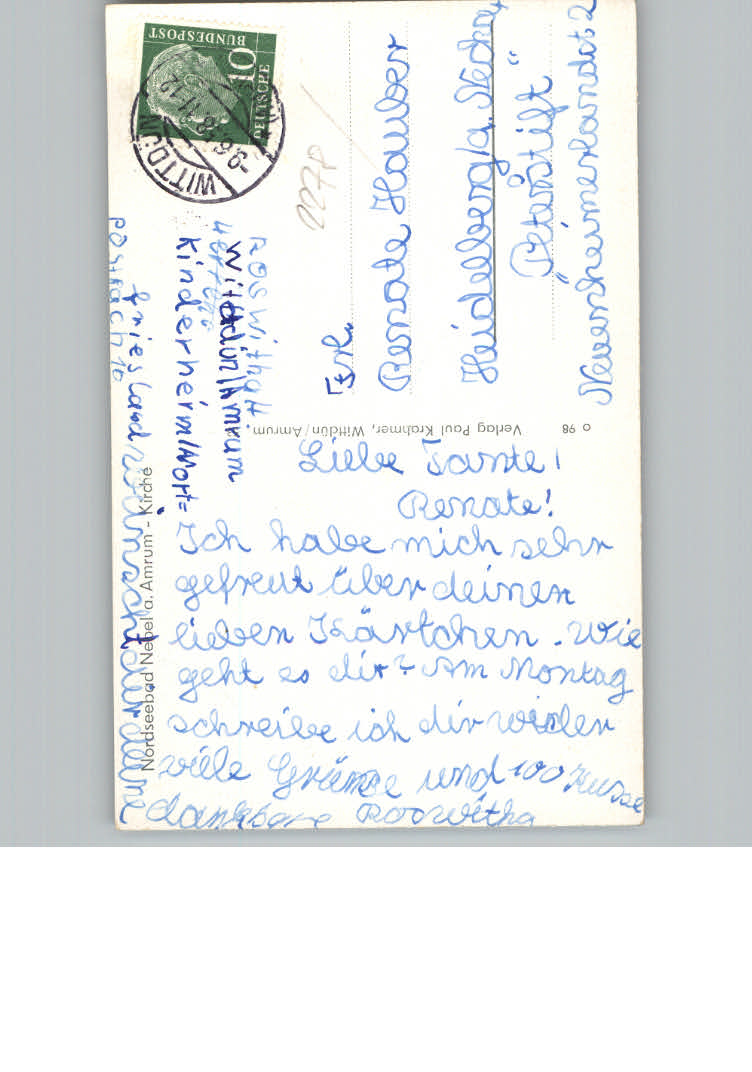 Liebe Tante!
Renate!
Ich habe mich sehr
gefreut über deinen
lieben Kärtchen. Wie
geht es dir? Am Montag
schreibe ich dir wieder
viele Grüsse und 100 Kusse
wünscht dir deine
dankbare Roswitha
Frl.
Renate Hauber
Heidelberg/a. Neckar
"Peterstift"
Neuenheimerlandstr 2
Roswitha
Wittdün/Amrum
Kinderheim/Nort=
friesland
postfach 10
2278
Nordseebad Nebel a. Amrum - Kirche
Verlag Paul Krahmer, Wittdün/Amrum.
o 98
DEUTSCHE
BUNDESPOST
10
WITTDÜN